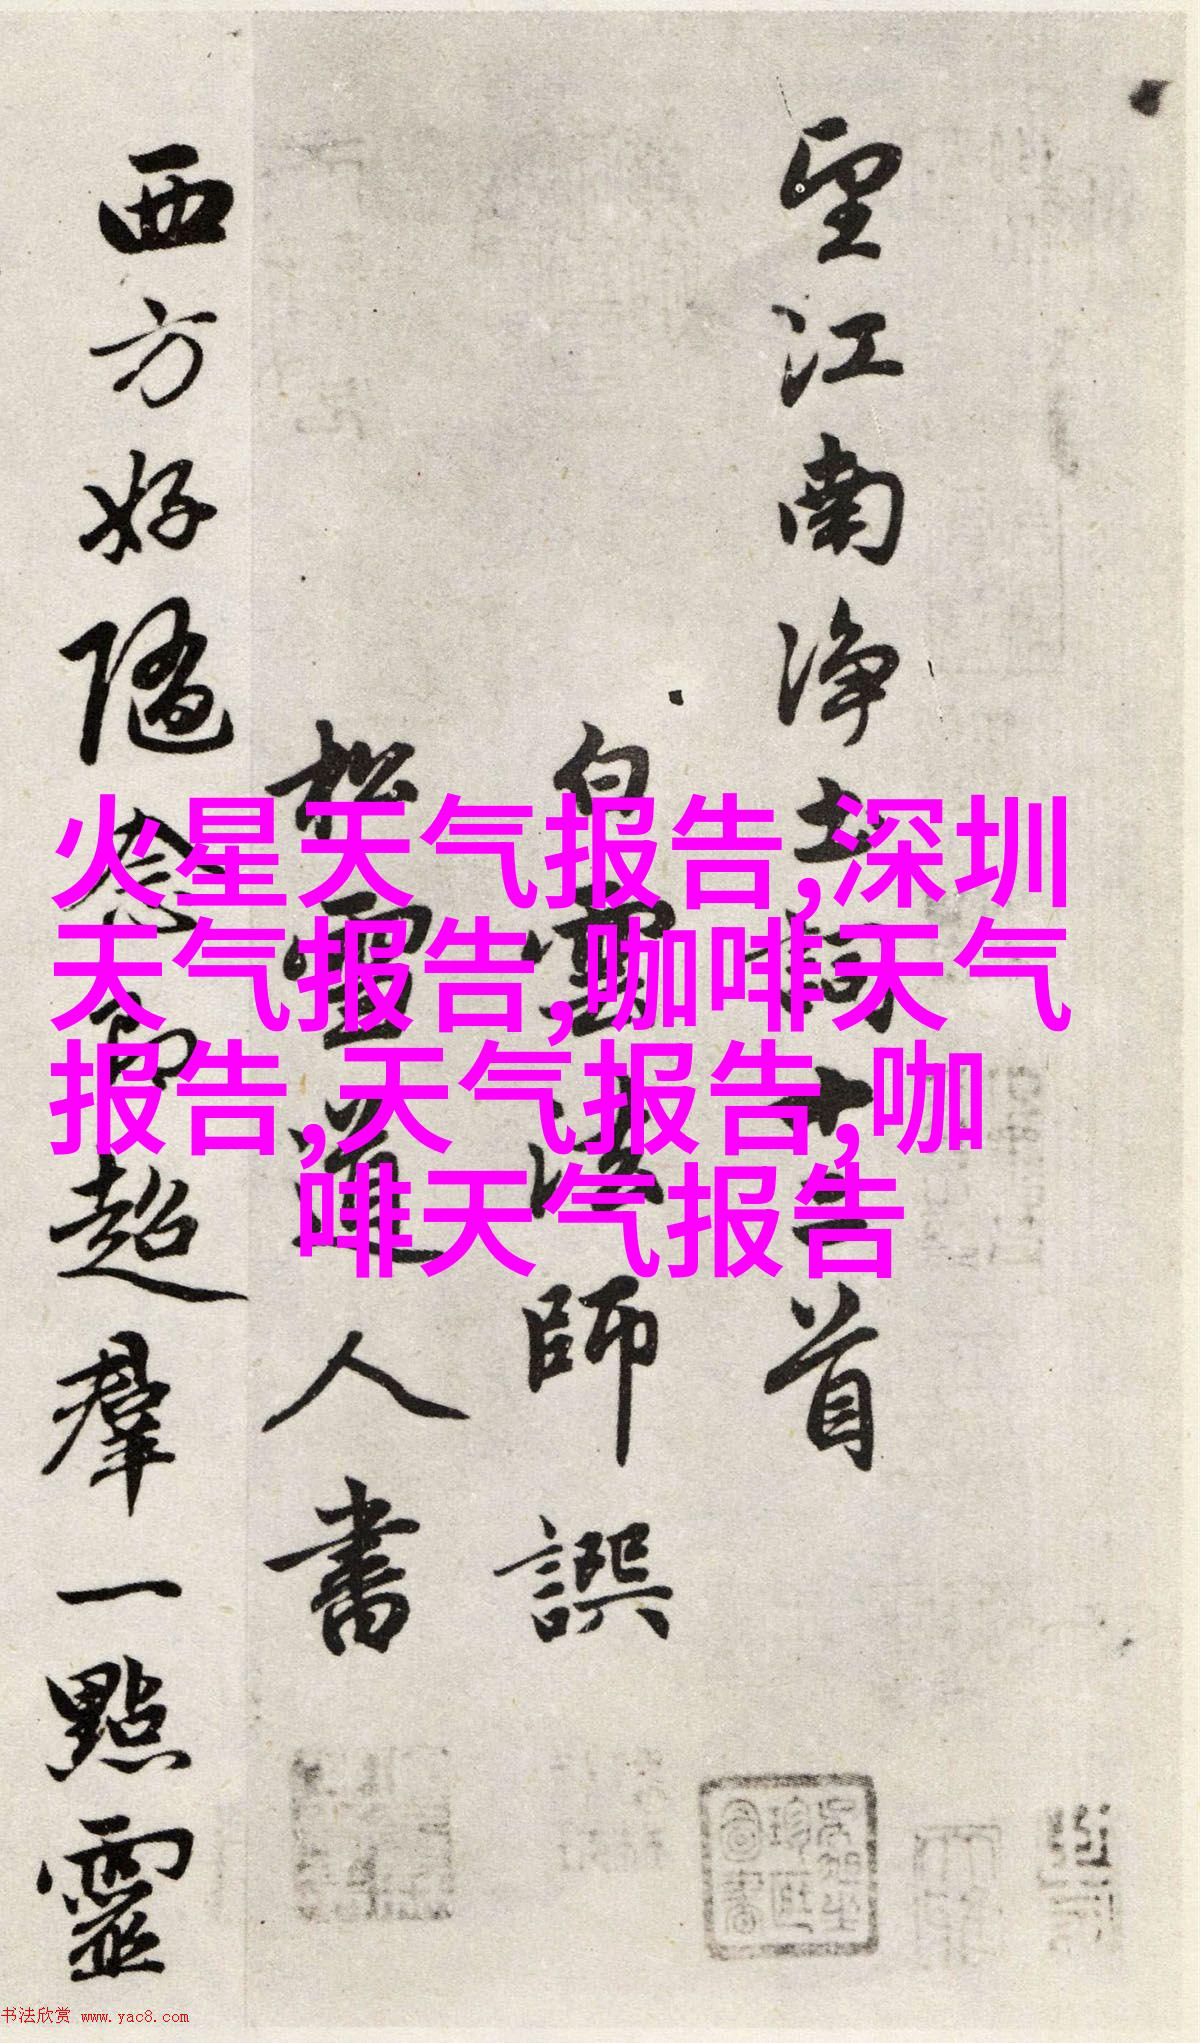 望江南淨土詞十二首
白雲法師譔
松雪道人書
西方好隨念即超羣一點靈
火星天气报告,深圳
天气报告,咖啡天气
报告,天气报告,咖
啡天气报告
书法欣赏 www.yac8.com